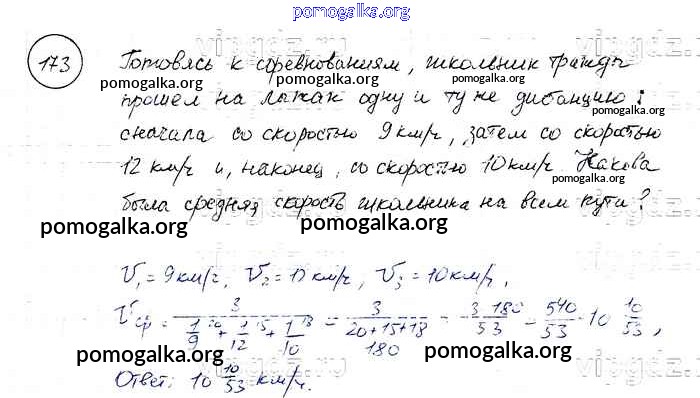 pomogalka.org
173 Готовясь к соревнованиям, школьник трижды
pomogalka.org pomogalka.org
прошел на лыжах одну и ту же дистанцию:
pomogalka.org
сначала со скоростью 9 км/ч, затем со скоростью
12 км/ч и, наконец, со скоростью 10 км/ч. Какова
pomogalka.org
была средняя скорость школьника на всем пути?
pomogalka.org pomogalka.org
V₁ = 9 км/ч, V₂ = 12 км/ч, V₃ = 10 км/ч.
Vср = 3/(1/9 + 1/12 + 1/10) = 3/((20+15+18)/180) = 3·180/53 = 540/53 = 10 10/53,
pomogalka.org pomogalka.org
Ответ: 10 10/53 км/ч.